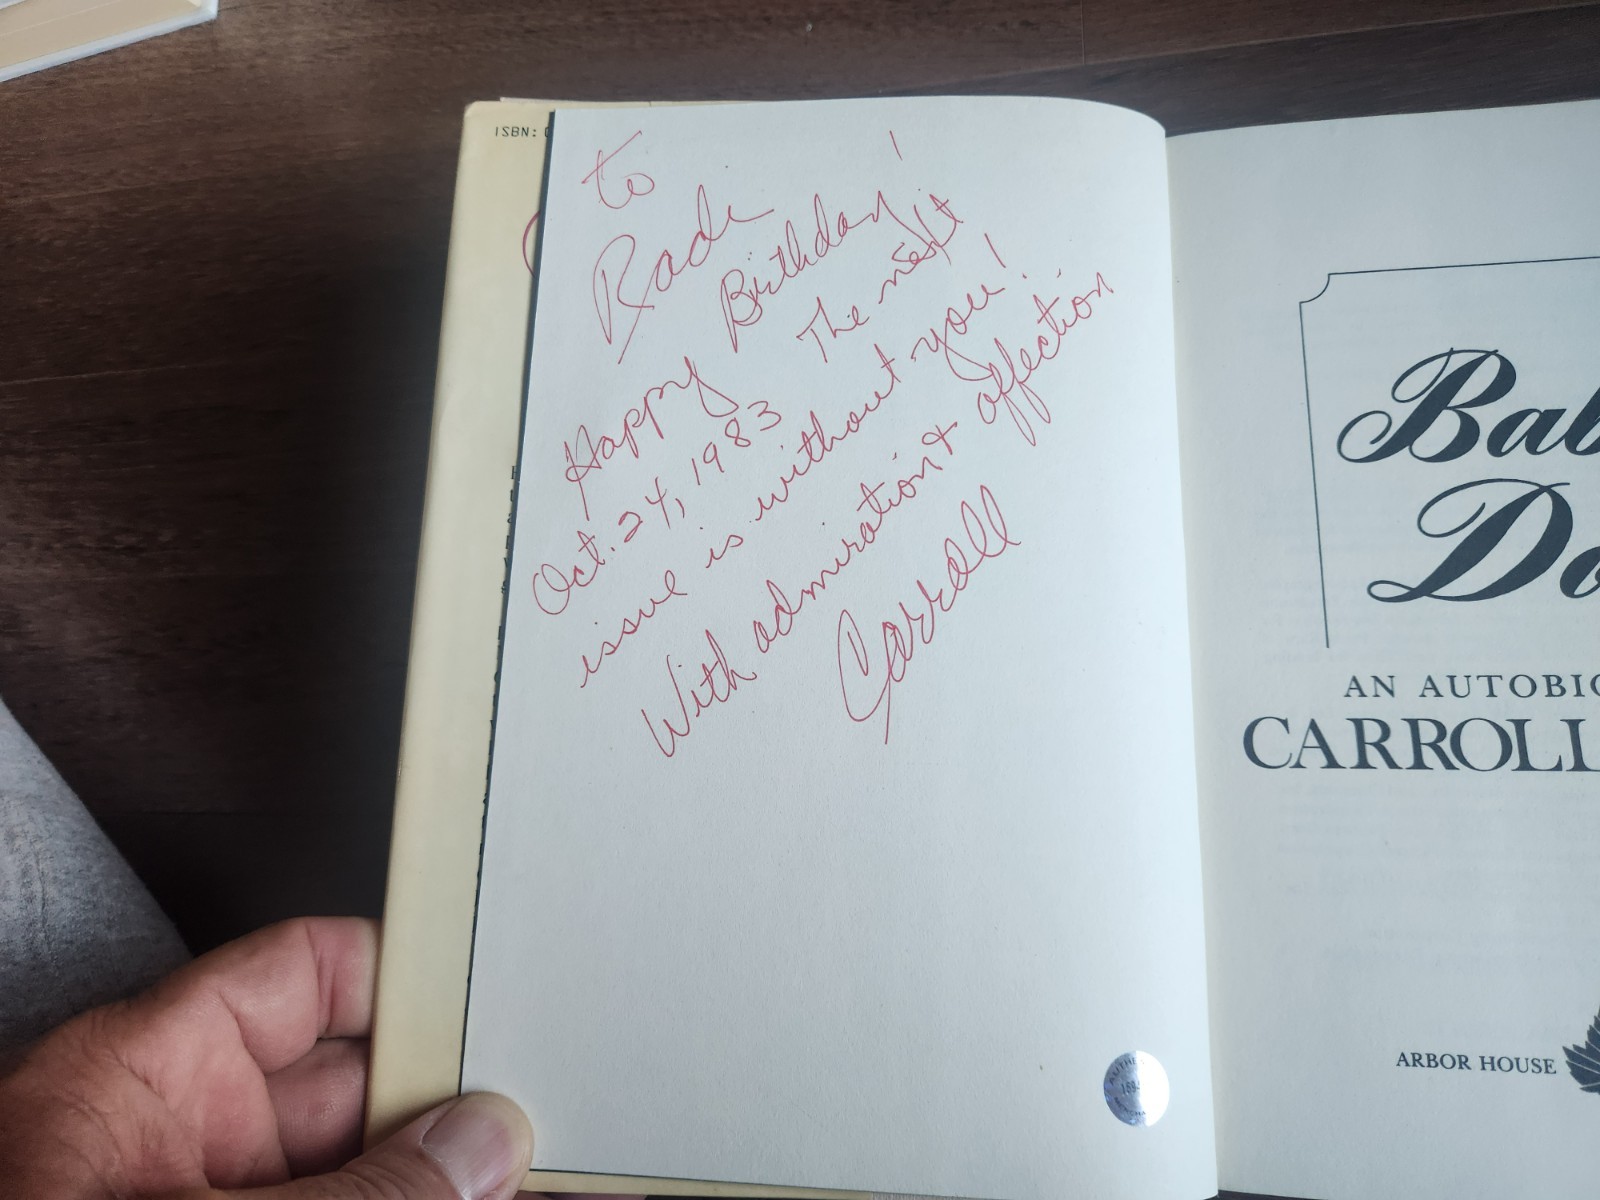 ISBN: 0
to
Radi
Happy Birthday!
Oct. 24, 1983 The next
issue is without you!
With admiration & affection
Carroll
Bab
Do
AN AUTOBIO
CARROLL
ARBOR HOUSE